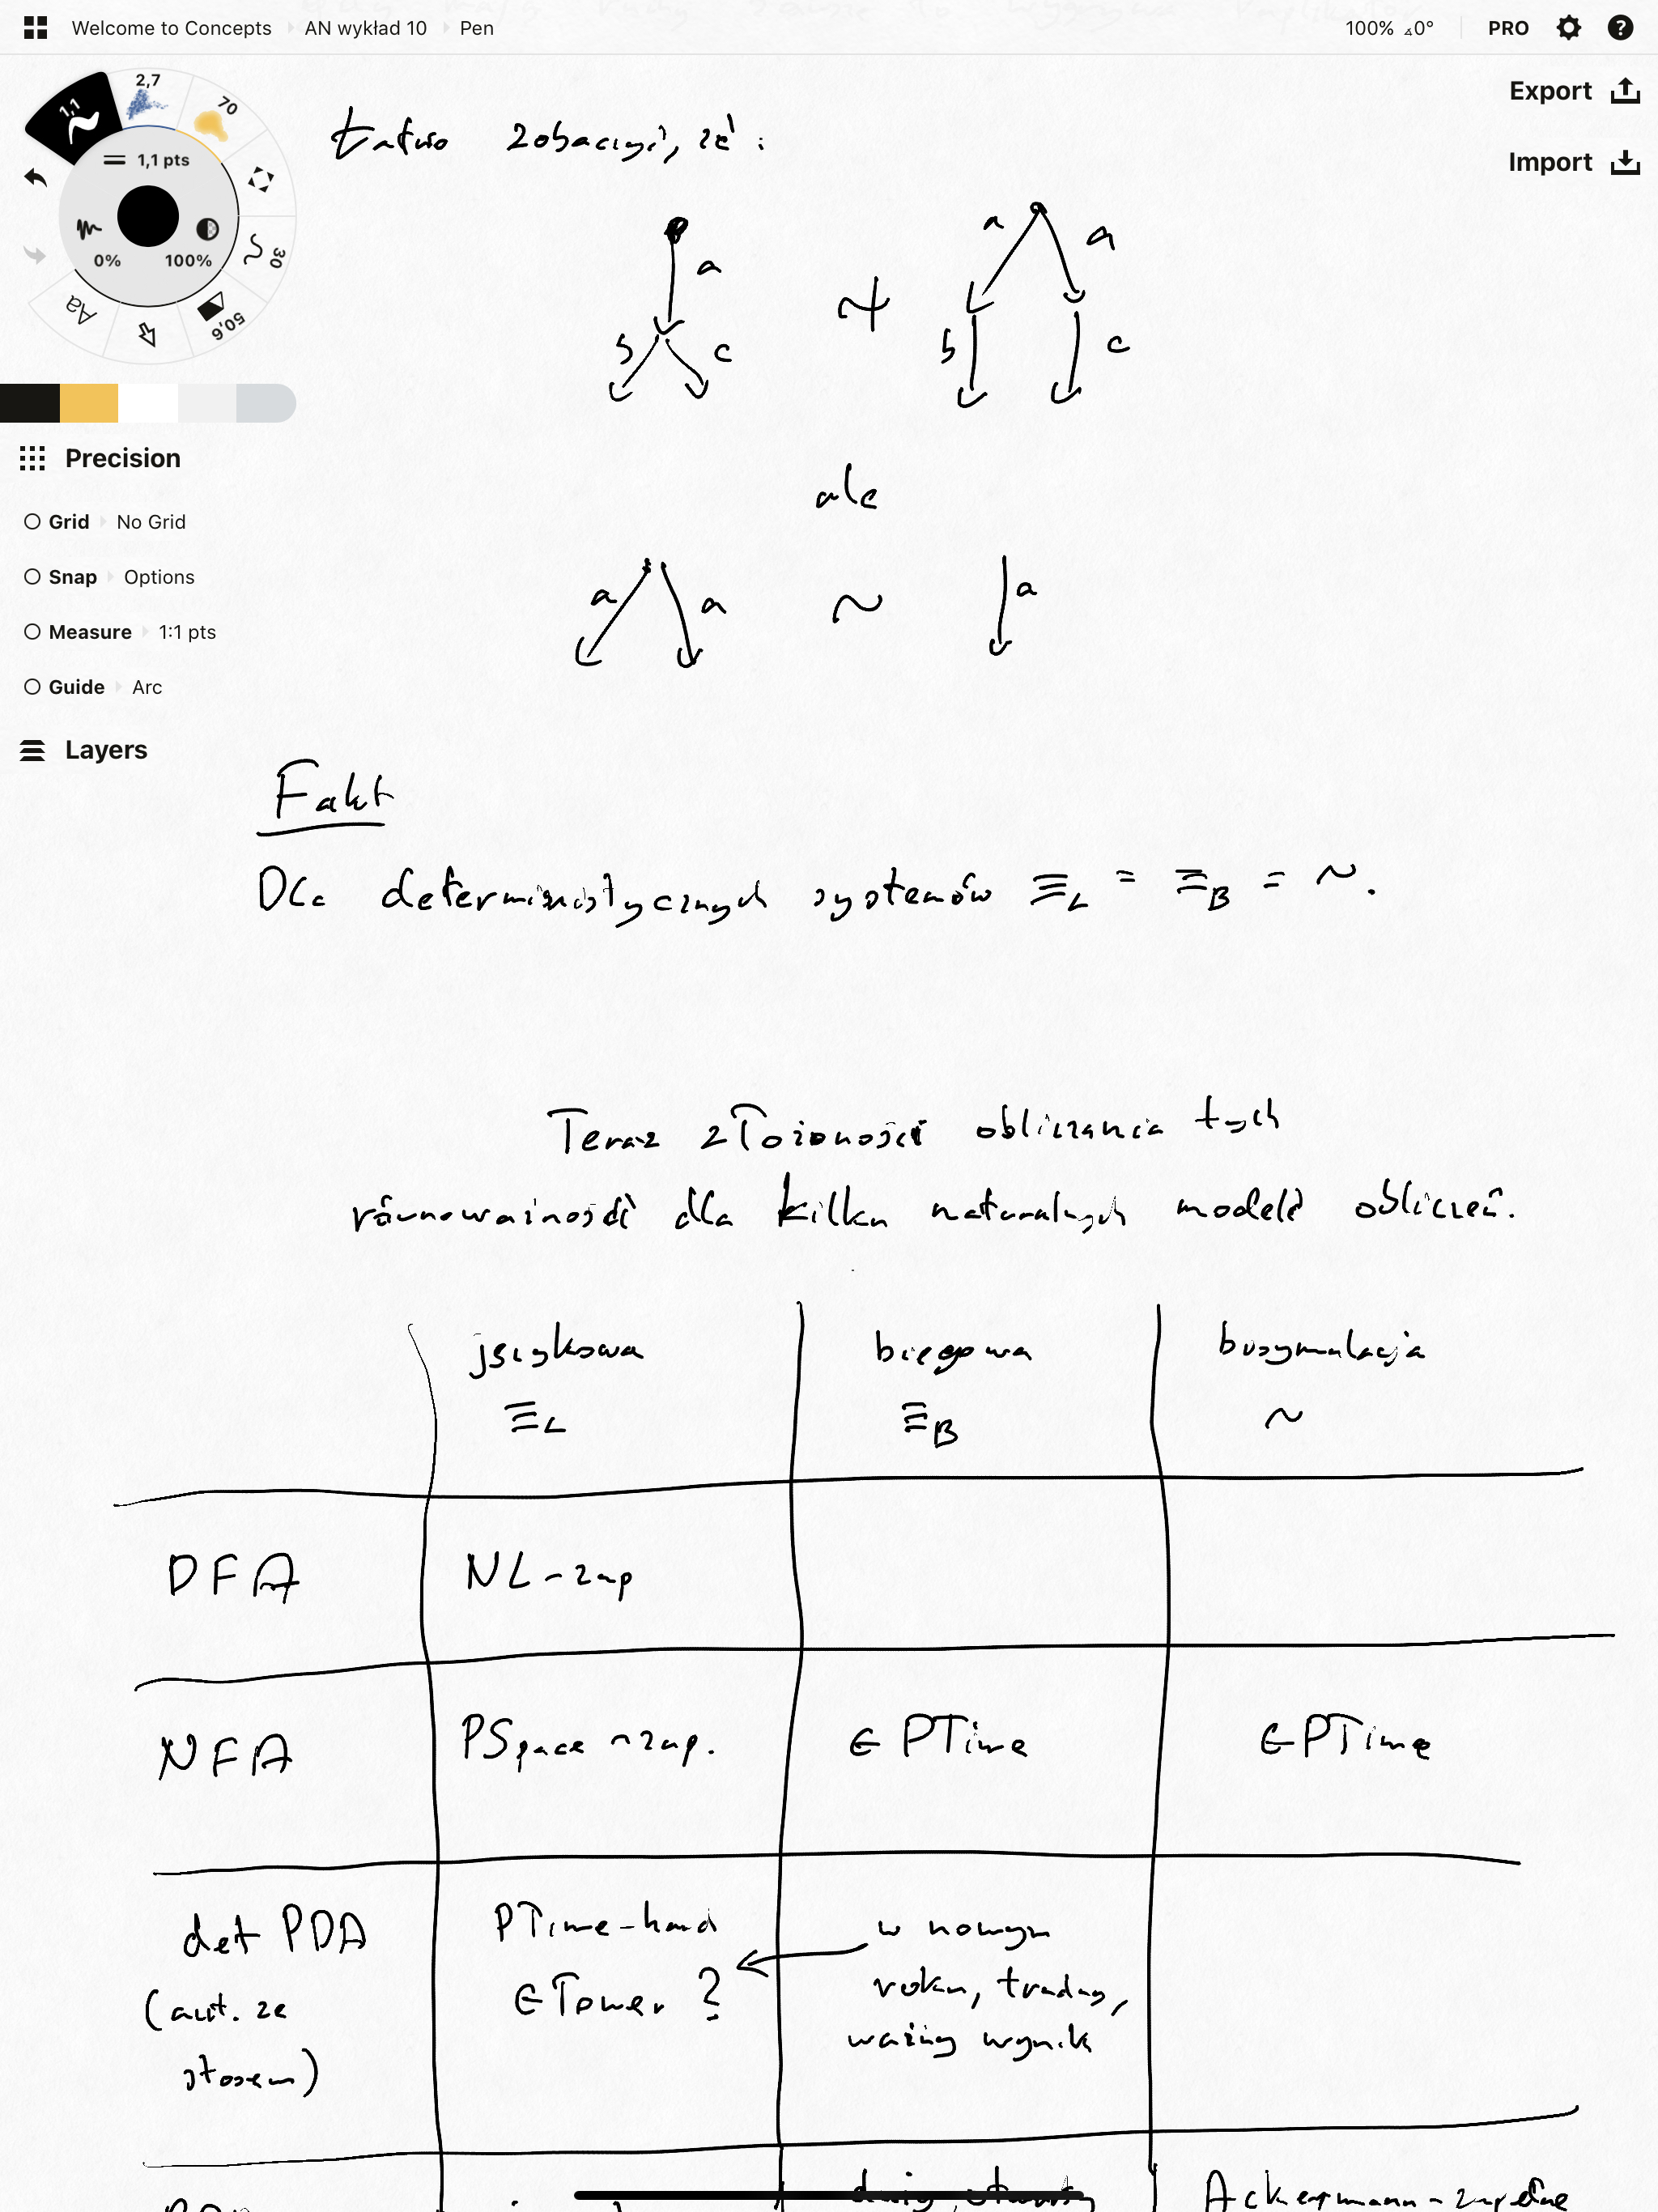 Welcome to Concepts AN wykład 10 Pen 100% 0° PRO
Export
Import
1,1 2,7 70
1,1 pts
0% 100%
30
50,6
Aa
Precision
Grid No Grid
Snap Options
Measure 1:1 pts
Guide Arc
Layers
Łatwo zobaczyć, że :
a a a
≁
b c b c
ale
a a ~ a
Fakt
Dla deterministycznych systemów ≡L = ≡B = ~.
Teraz złożoności obliczania tych
równoważności dla kilku naturalnych modeli obliczeń.
językowa biegowa bisymulacja
≡L ≡B ~
DFA NL-zup
NFA PSpace-zup. ∈ PTime ∈ PTime
det PDA PTime-hard w nowym
(aut. ze ∈ Tower ? roku, trudny,
stosem) ważny wynik
Ackermann-zupełne